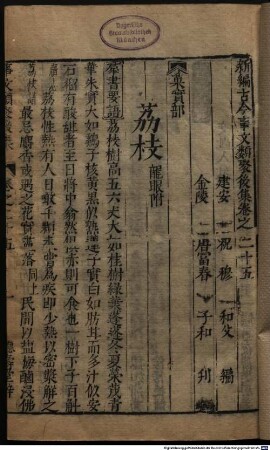 新編古今事文類聚後集卷之二十五
建安 祝穆 和父 編
金陵 唐富春 子和 刊
果實部
荔枝 龍眼附
羣書要語荔枝樹高五六丈大如桂樹綠葉蓬蓬冬夏榮茂青
華朱實大如雞子核黃黑似熟蓮子實白如肪甘而多汁似安
石榴有酸甜者至日將中翕然俱赤則可食也一樹下子百斛
荔枝性熱有人日啖千顆未嘗為疾即少熱以蜜漿解之
最忌麝香或遇之花實盡落 同上 民間以鹽梅鹵浸佛
Bayerische
Staatsbibliothek
München